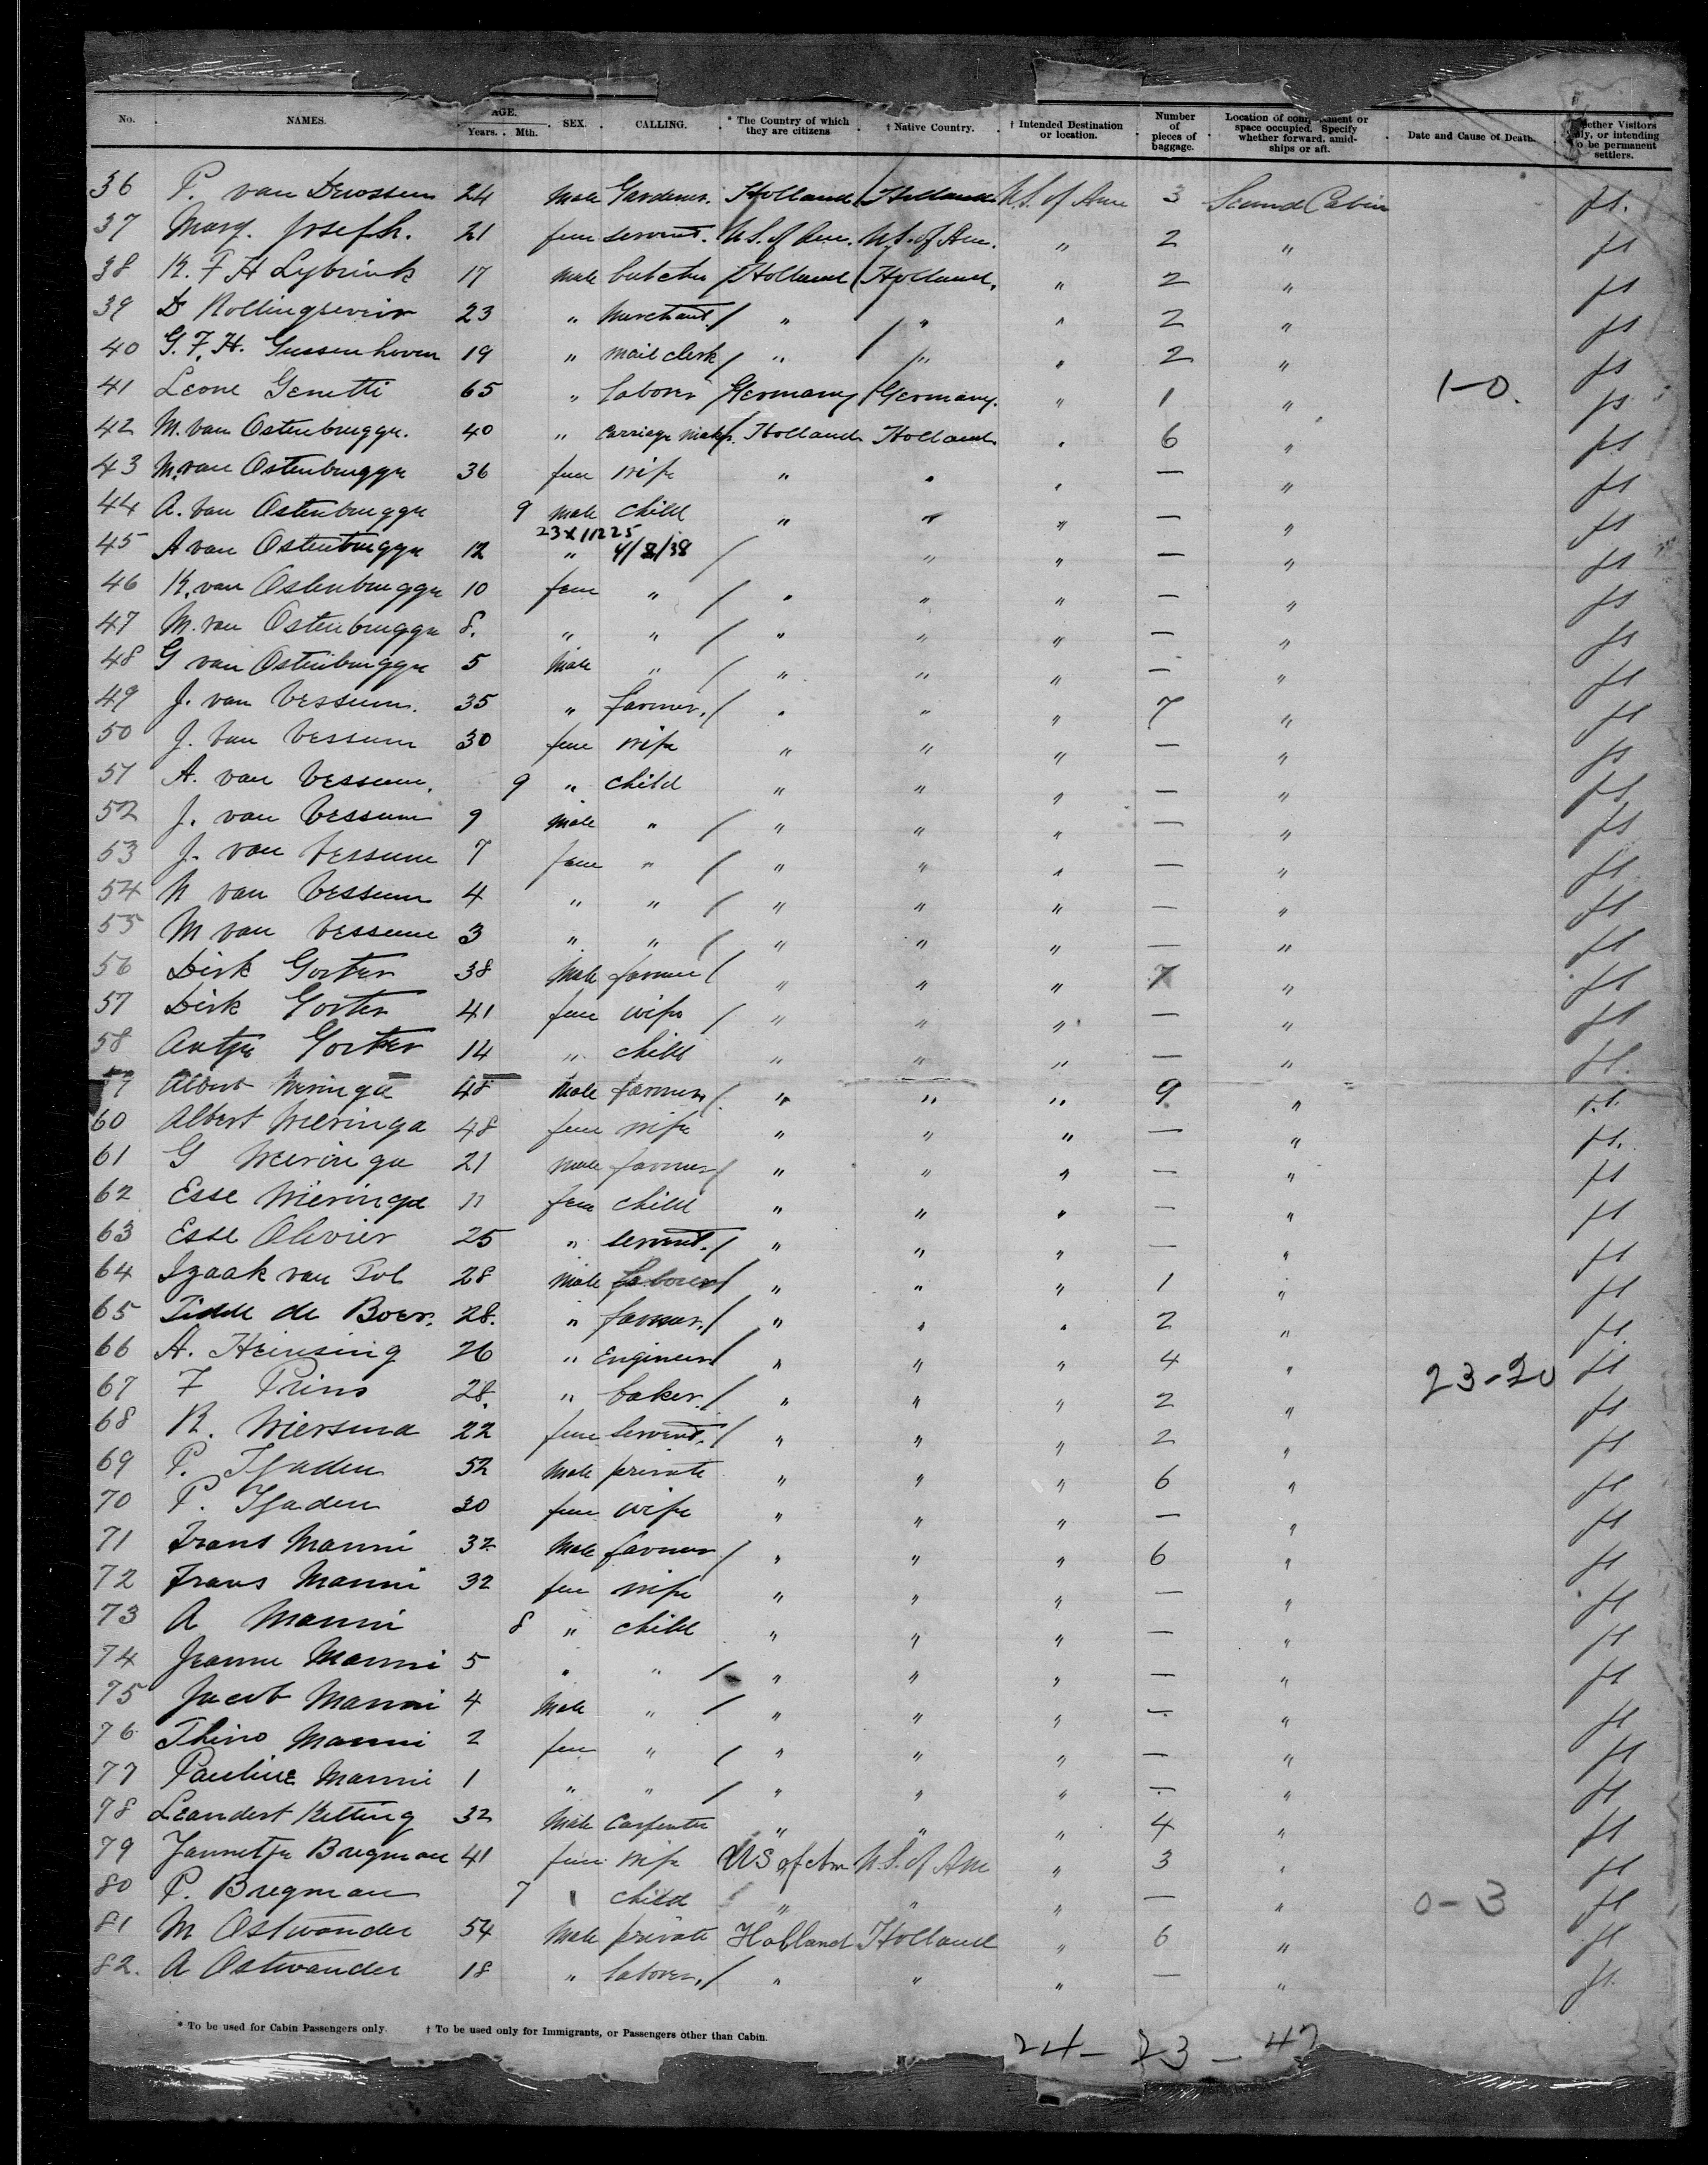 No. NAMES. AGE. Years. Mth. SEX. CALLING. * The Country of which they are citizens † Native Country. † Intended Destination or location. Number of pieces of baggage. Location of space occupied. Specify whether forward, amidships or aft. Date and Cause of Death. Visitors or intending to be permanent settlers.
36 P. van 24 Male Gardener. Holland Holland U.S. of Am 3 Second Cabin
37 Marg. Joseph. 21 fem servent. U.S. of Am. U.S. of Am. " 2 "
38 K. F H Lybrink 17 Male butcher Holland Holland. " 2 "
39 D 23 " Merchant. / " / " " 2 "
40 G. F. H. Gussenhoven 19 " mail clerk / " / " " 2 "
41 Leone Genetti 65 " laborer Germany Germany. " 1 " 1-0.
42 M. van Ostenbrugge. 40 " Carriage Holland Holland " 6 "
43 M. van Ostenbrugge 36 fem wife " " " — "
44 A. van Ostenbrugge 9 male child " " " — "
23 x 11225
45 A van Ostenbrugge 12 " 4/2/38 / " " — "
46 K. van Ostenbrugge 10 fem " / " " " — "
47 M. van Ostenbrugge 8. " " / " " " — "
48 G van Ostenbrugge 5 Male " / " " " — "
49 J. van Vessum. 35 " farmer. / " " " 7 "
50 J. van Vessum 30 fem wife " " " — "
51 A. van Vessum. 9 " child " " " — "
52 J. van Vessum 9 Male " / " " " — "
53 J. van Vessum 7 fem " / " " " — "
54 N van Vessum 4 " " / " " " — "
55 M van Vessum 3 " " / " " " — "
56 Dirk Gorter 38 Male farmer / " " " 7 "
57 Dirk Gorter 41 fem wife / " " " — "
58 Antje Gorter 14 " child " " " — "
Albert Wieringa 48 Male farmer / " " " 9 "
60 Albert Wieringa 48 fem wife " " " — "
61 G Wieringa 21 male farmer / " " " — "
62 Esse Wieringa 11 fem child " " " — "
63 Esse Olivier 25 " servent. / " " " — "
64 Izaak van Pol 28 Male laborer / " " " 1 "
65 de Boer. 28. " farmer. / " " " 2 "
66 A. Heinsing 26 " Engineer / " " " 4 "
67 F Prins 28. " baker. / " " " 2 " 23-20
68 R. Wiersma 22 fem servent. / " " " 2 "
69 P. Tjaden 52 Male private " " " 6 "
70 P. Tjaden 30 fem wife " " " — "
71 Frans Manni 32 Male farmer / " " " 6 "
72 Frans Manni 32 fem wife " " " — "
73 A Manni 8 " child " " " — "
74 Jeanne Manni 5 " " / " " " — "
75 Jacob Manni 4 Male " / " " " — "
76 Manni 2 fem " / " " " — "
77 Pauline Manni 1 " " / " " " — "
78 Leendert Ketting 32 Male Carpenter " " " 4 "
79 Jannetje Bregman 41 fem wife US of Am U.S. of Am " 3 "
80 P. Bregman 7 " child " " " — " 0-3
81 M Ostwander 54 Male private Holland Holland " 6 "
82. A Ostwander 18 " laborer, / " " " — "
* To be used for Cabin Passengers only. † To be used only for Immigrants, or Passengers other than Cabin.
24 - 23 - 47